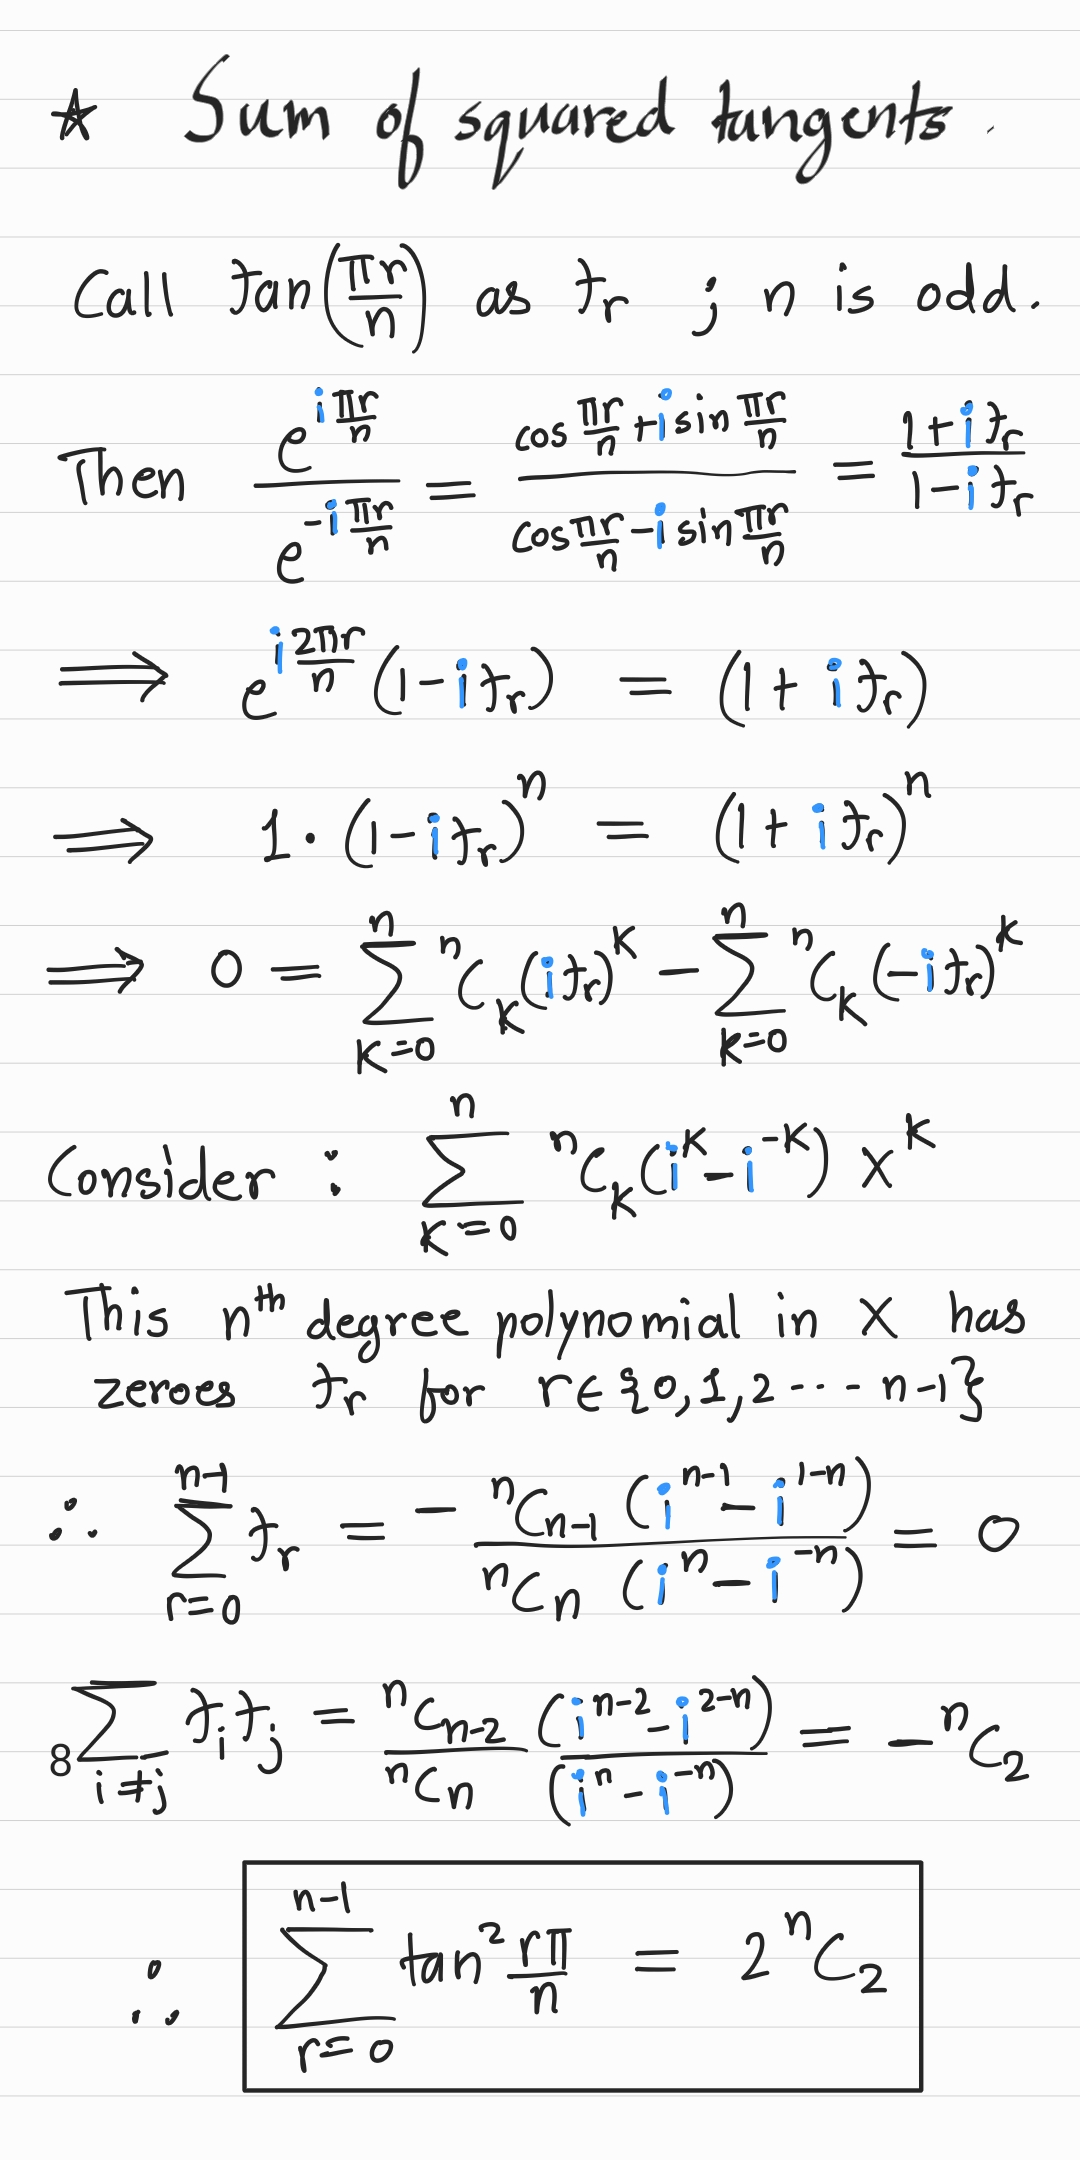 ☆ Sum of squared tangents.
Call tan(πr/n) as t_r ; n is odd.
Then e^(i πr/n) / e^(-i πr/n) = (cos πr/n + i sin πr/n) / (cos πr/n - i sin πr/n) = (1 + i t_r) / (1 - i t_r)
⟹ e^(i 2πr/n) (1 - i t_r) = (1 + i t_r)
⟹ 1 · (1 - i t_r)^n = (1 + i t_r)^n
⟹ 0 = ∑_{k=0}^{n} ^nC_k (i t_r)^k - ∑_{k=0}^{n} ^nC_k (-i t_r)^k
Consider : ∑_{k=0}^{n} ^nC_k (i^k - i^-k) x^k
This n^th degree polynomial in x has
zeroes t_r for r ∈ {0, 1, 2 --- n-1}
∴ ∑_{r=0}^{n-1} t_r = - ^nC_{n-1} (i^{n-1} - i^{1-n}) / ^nC_n (i^n - i^{-n}) = 0
8 ∑_{i≠j} t_i t_j = ^nC_{n-2} / ^nC_n (i^{n-2} - i^{2-n}) / (i^n - i^{-n}) = - ^nC_2
∴ ∑_{r=0}^{n-1} tan² rπ/n = 2 ^nC_2